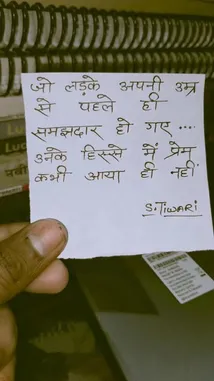 जो लड़के अपनी उम्र
से पहले ही
समझदार हो गए ....
उनके हिस्से में प्रेम
कभी आया ही नहीं
S.TIWARI